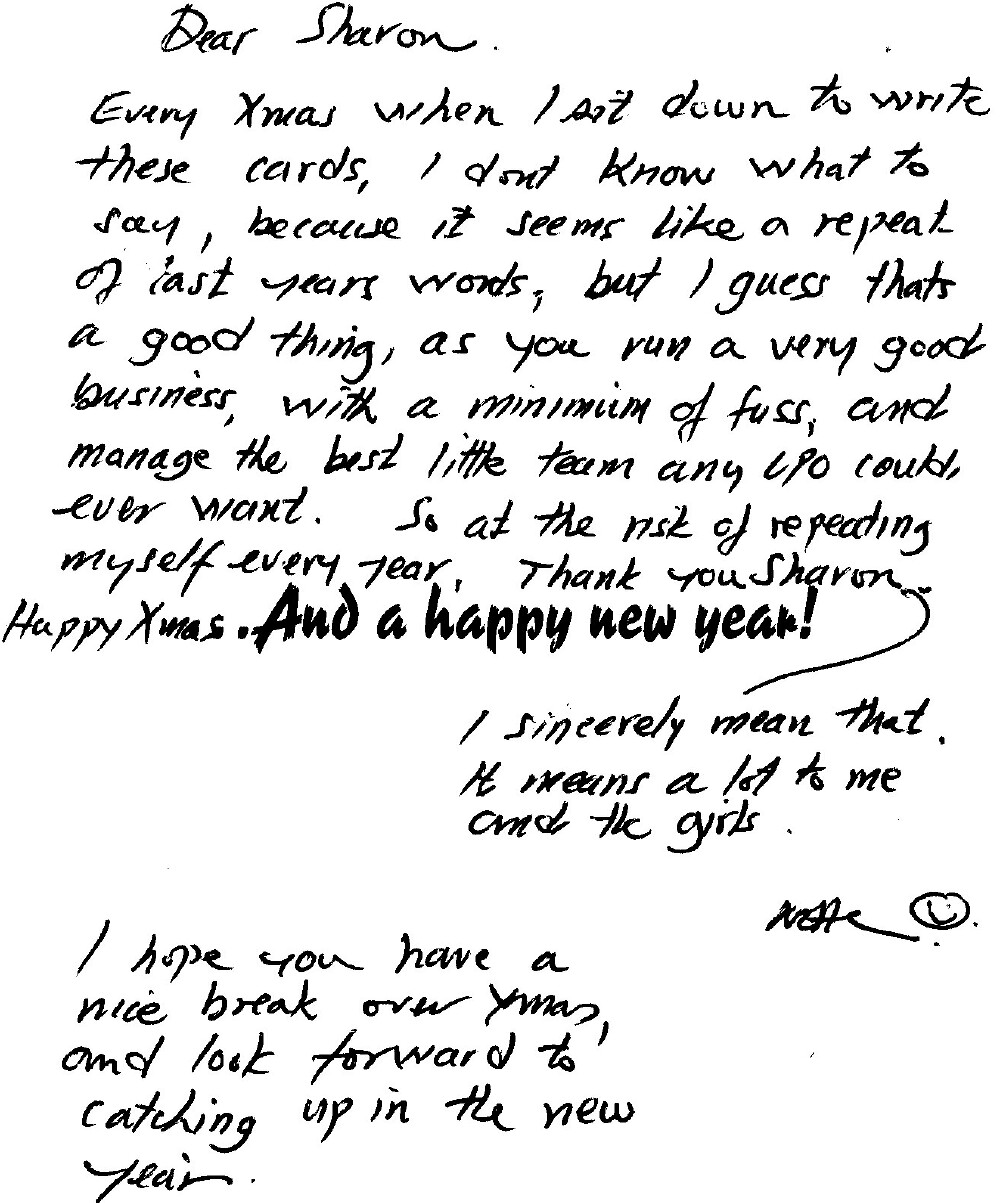 Dear Sharon.
Every Xmas when I sit down to write
these cards, I dont know what to
say, because it seems like a repeat
of last years words, but I guess thats
a good thing, as you run a very good
business, with a minimum of fuss, and
manage the best little team any LPO could,
ever want. So at the risk of repeating
myself every year, Thank you Sharon
Happy Xmas. And a happy new year!
I sincerely mean that.
It means a lot to me
and the girls.
I hope you have a
nice break over Xmas,
and look forward to
catching up in the new
year.